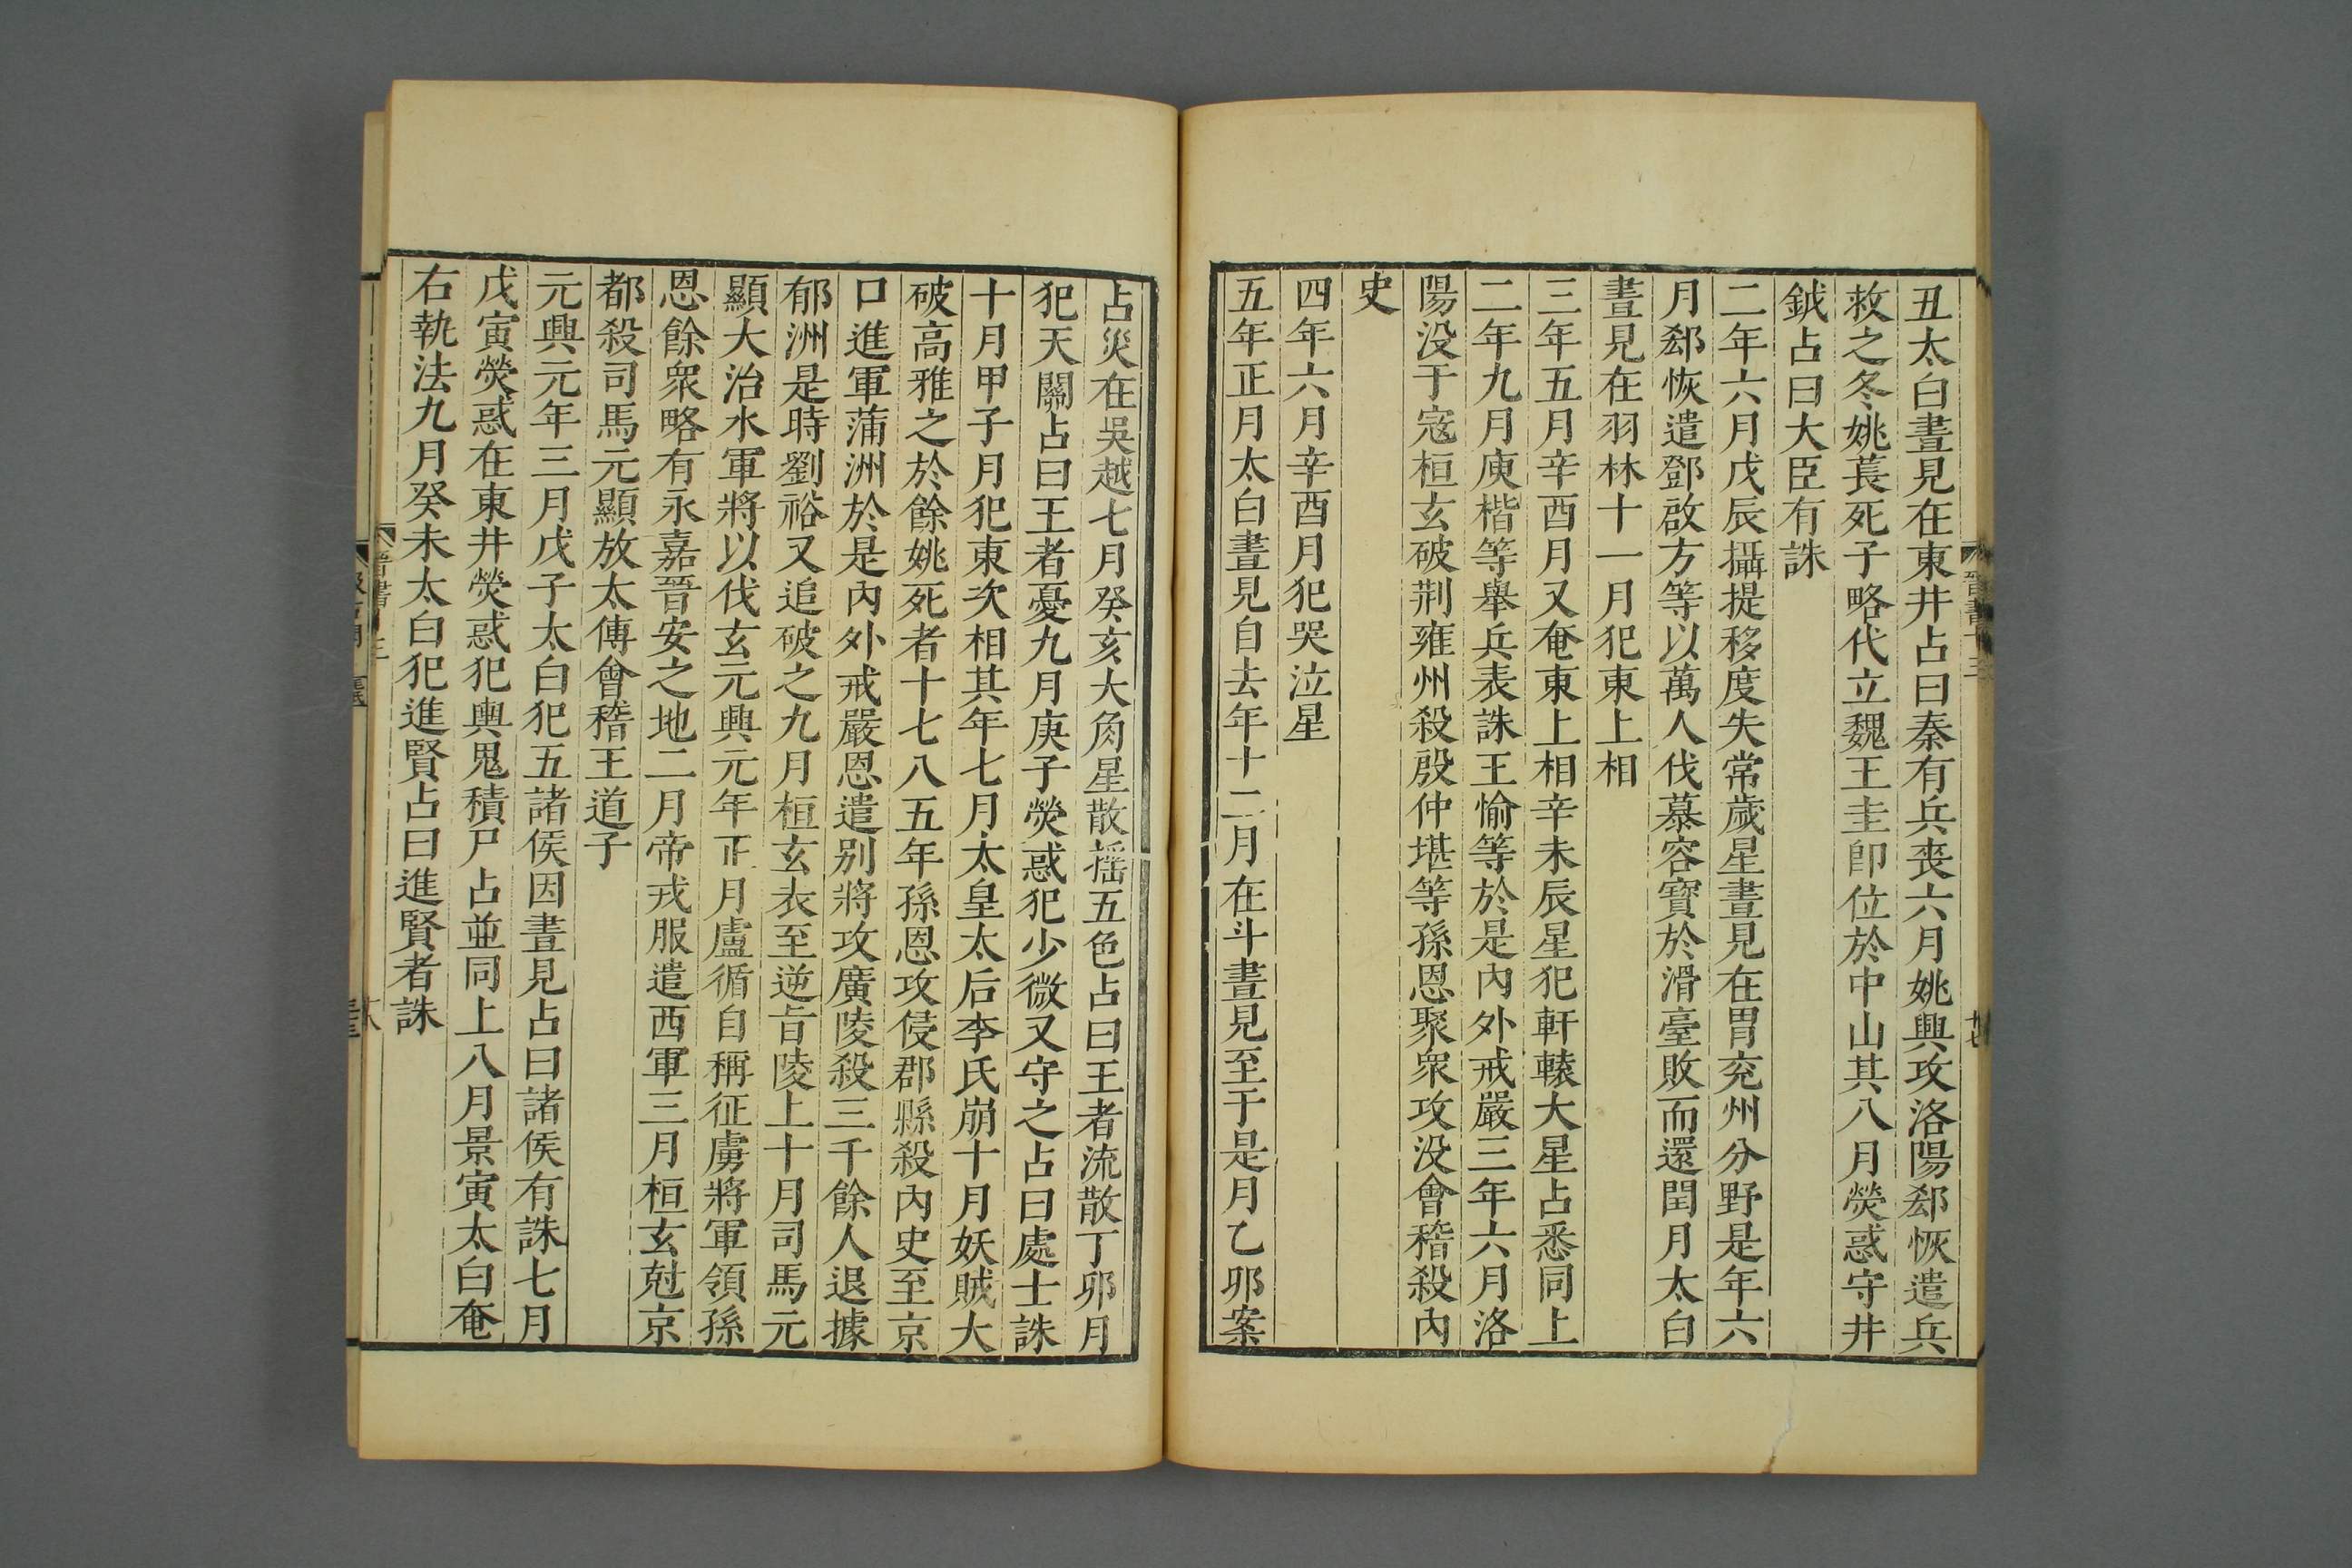 丑太白晝見在東井占曰秦有兵喪六月姚興攻洛陽郄恢遣兵
救之冬姚萇死子略代立魏王圭即位於中山其八月熒惑守井
鉞占曰大臣有誅
二年六月戊辰攝提移度失常歲星晝見在胃兗州分野是年六
月郄恢遣鄧啟方等以萬人伐慕容寶於滑臺敗而還閏月太白
晝見在羽林十一月犯東上相
三年五月辛酉月又奄東上相辛未辰星犯軒轅大星占悉同上
二年九月庾楷等舉兵表誅王愉等於是內外戒嚴三年六月洛
陽没于寇桓玄破荆雍州殺殷仲堪等孫恩聚衆攻没會稽殺內
史
四年六月辛酉月犯哭泣星
五年正月太白晝見自去年十二月在斗晝見至于是月乙卯案
占災在吳越七月癸亥大角星散摇五色占曰王者流散丁卯月
犯天關占曰王者憂九月庚子熒惑犯少微又守之占曰處士誅
十月甲子月犯東次相其年七月太皇太后李氏崩十月妖賊大
破高雅之於餘姚死者十七八五年孫恩攻侵郡縣殺內史至京
口進軍蒲洲於是內外戒嚴恩遣别將攻廣陵殺三千餘人退據
郁洲是時劉裕又追破之九月桓玄表至逆旨陵上十月司馬元
顯大治水軍將以伐玄元興元年正月盧循自稱征虜將軍領孫
恩餘衆略有永嘉晉安之地二月帝戎服遣西軍三月桓玄尅京
都殺司馬元顯放太傅會稽王道子
元興元年三月戊子太白犯五諸侯因晝見占曰諸侯有誅七月
戊寅熒惑在東井熒惑犯輿鬼積尸占並同上八月景寅太白奄
右執法九月癸未太白犯進賢占曰進賢者誅
晉書十三
十八